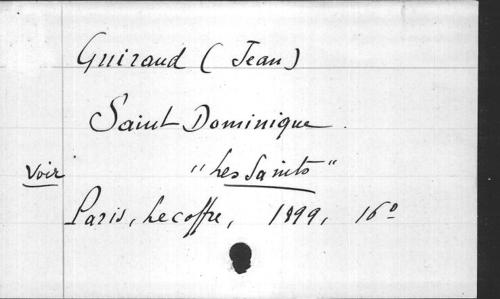 Guiraud (Jean)
Saint Dominique.
Voir "Les Saints"
Paris, Lecoffre, 1899, 16°